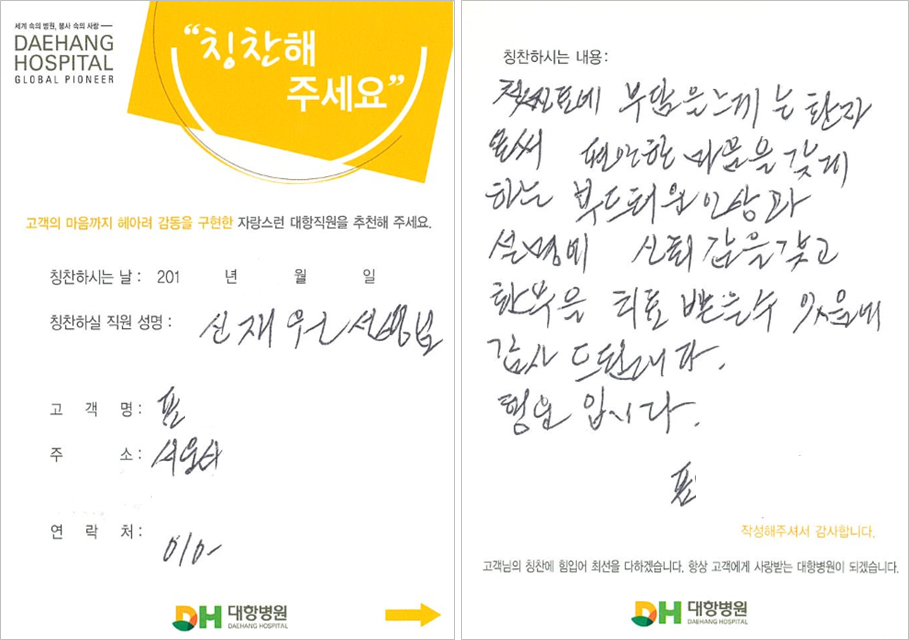 세계 속의 병원, 봉사 속의 사랑
DAEHANG
HOSPITAL
GLOBAL PIONEER
“칭찬해
주세요”
고객의 마음까지 헤아려 감동을 구현한 자랑스런 대항직원을 추천해 주세요.
칭찬하시는 날 : 201 년 월 일
칭찬하실 직원 성명 : 신재원 선생님
고 객 명 : 표
주 소 : 서울시
연 락 처 : 010-
DH 대항병원
DAEHANG HOSPITAL
칭찬하시는 내용 :
부담을 느끼는 환자
로써 편안한 마음을 갖게
하는 부드러운 인상과
설명에 신뢰감을 갖고
환부을 치료 받을수 있음에
감사 드립니다.
입니다.
표
작성해주셔서 감사합니다.
고객님의 칭찬에 힘입어 최선을 다하겠습니다. 항상 고객에게 사랑받는 대항병원이 되겠습니다.
DH 대항병원
DAEHANG HOSPITAL